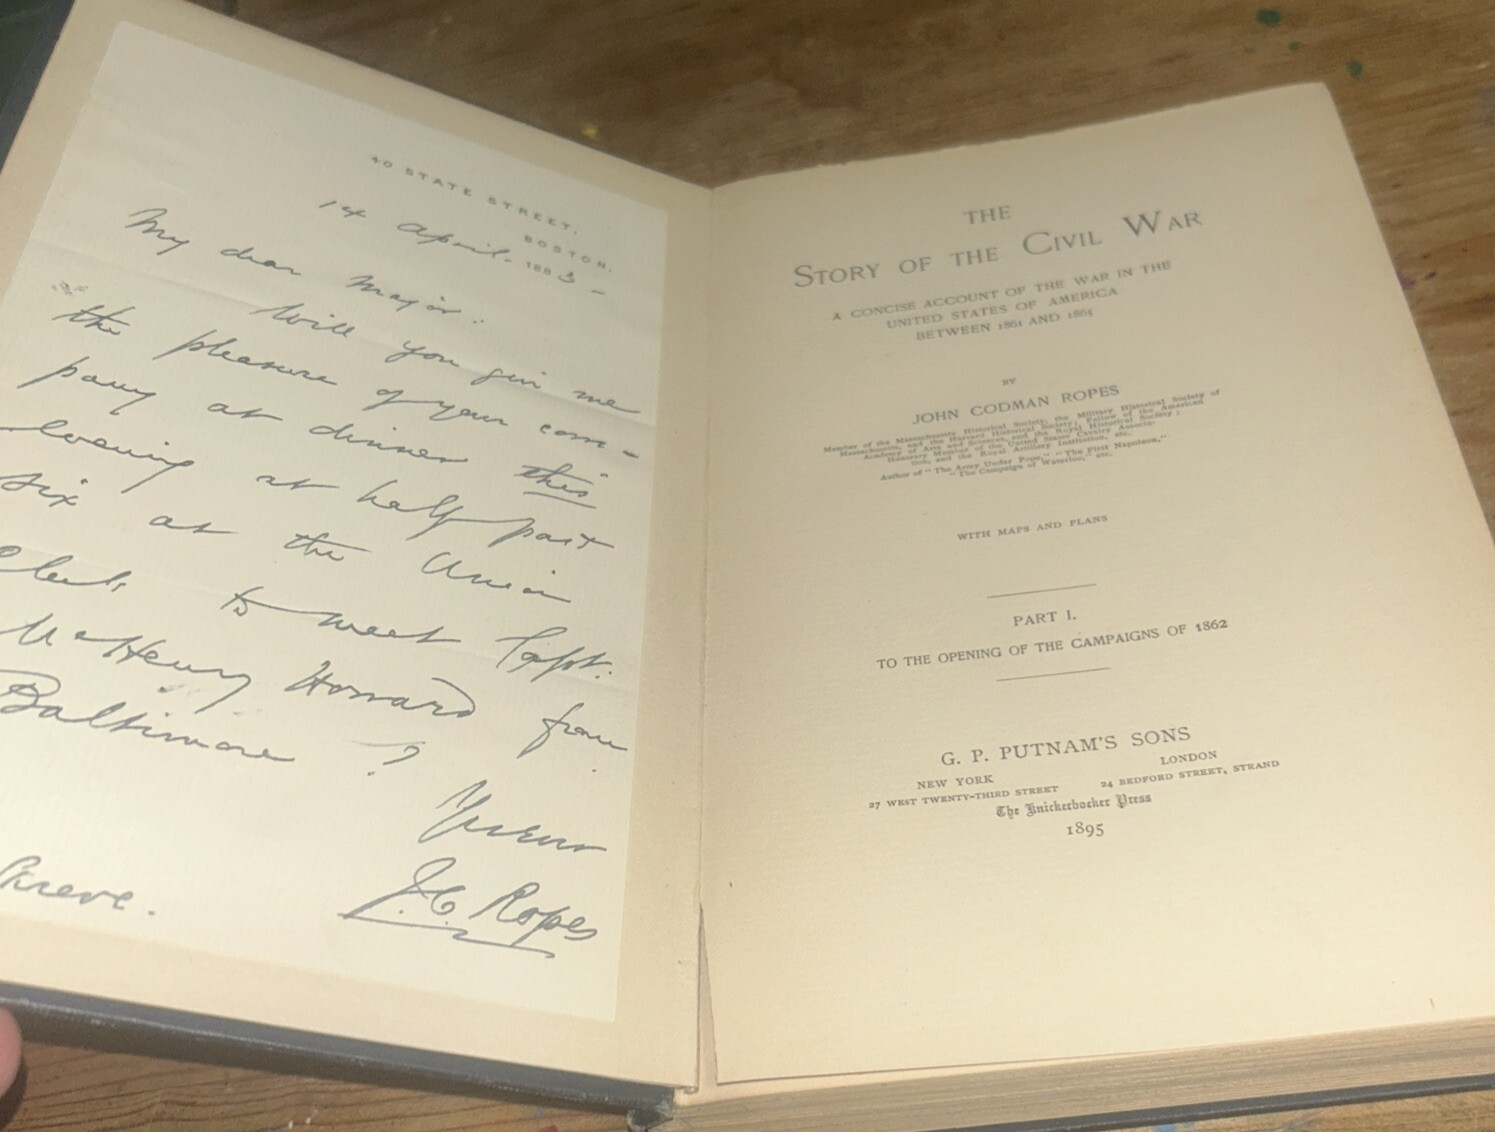 40 STATE STREET,
BOSTON.
14 April. 1883 -
My dear Major:
Will you give me
the pleasure of your com-
pany at dinner this
evening at half past
six at the Union
Club, to meet Capt.
McHenry Howard from
Baltimore?
Yours
J. C. Ropes
THE
STORY OF THE CIVIL WAR
A CONCISE ACCOUNT OF THE WAR IN THE
UNITED STATES OF AMERICA
BETWEEN 1861 AND 1865
BY
JOHN CODMAN ROPES
Member of the Massachusetts Historical Society, the Military Historical Society of
Massachusetts, and the Harvard Historical Society; Fellow of the American
Academy of Arts and Sciences, and the Royal Historical Society;
Honorary Member of the United States Cavalry Associa-
tion, and the Royal Artillery Institution, etc.
Author of "The Army Under Pope," "The First Napoleon,"
"The Campaign of Waterloo," etc.
WITH MAPS AND PLANS
PART I.
TO THE OPENING OF THE CAMPAIGNS OF 1862
G. P. PUTNAM'S SONS
NEW YORK LONDON
27 WEST TWENTY-THIRD STREET 24 BEDFORD STREET, STRAND
The Knickerbocker Press
1895